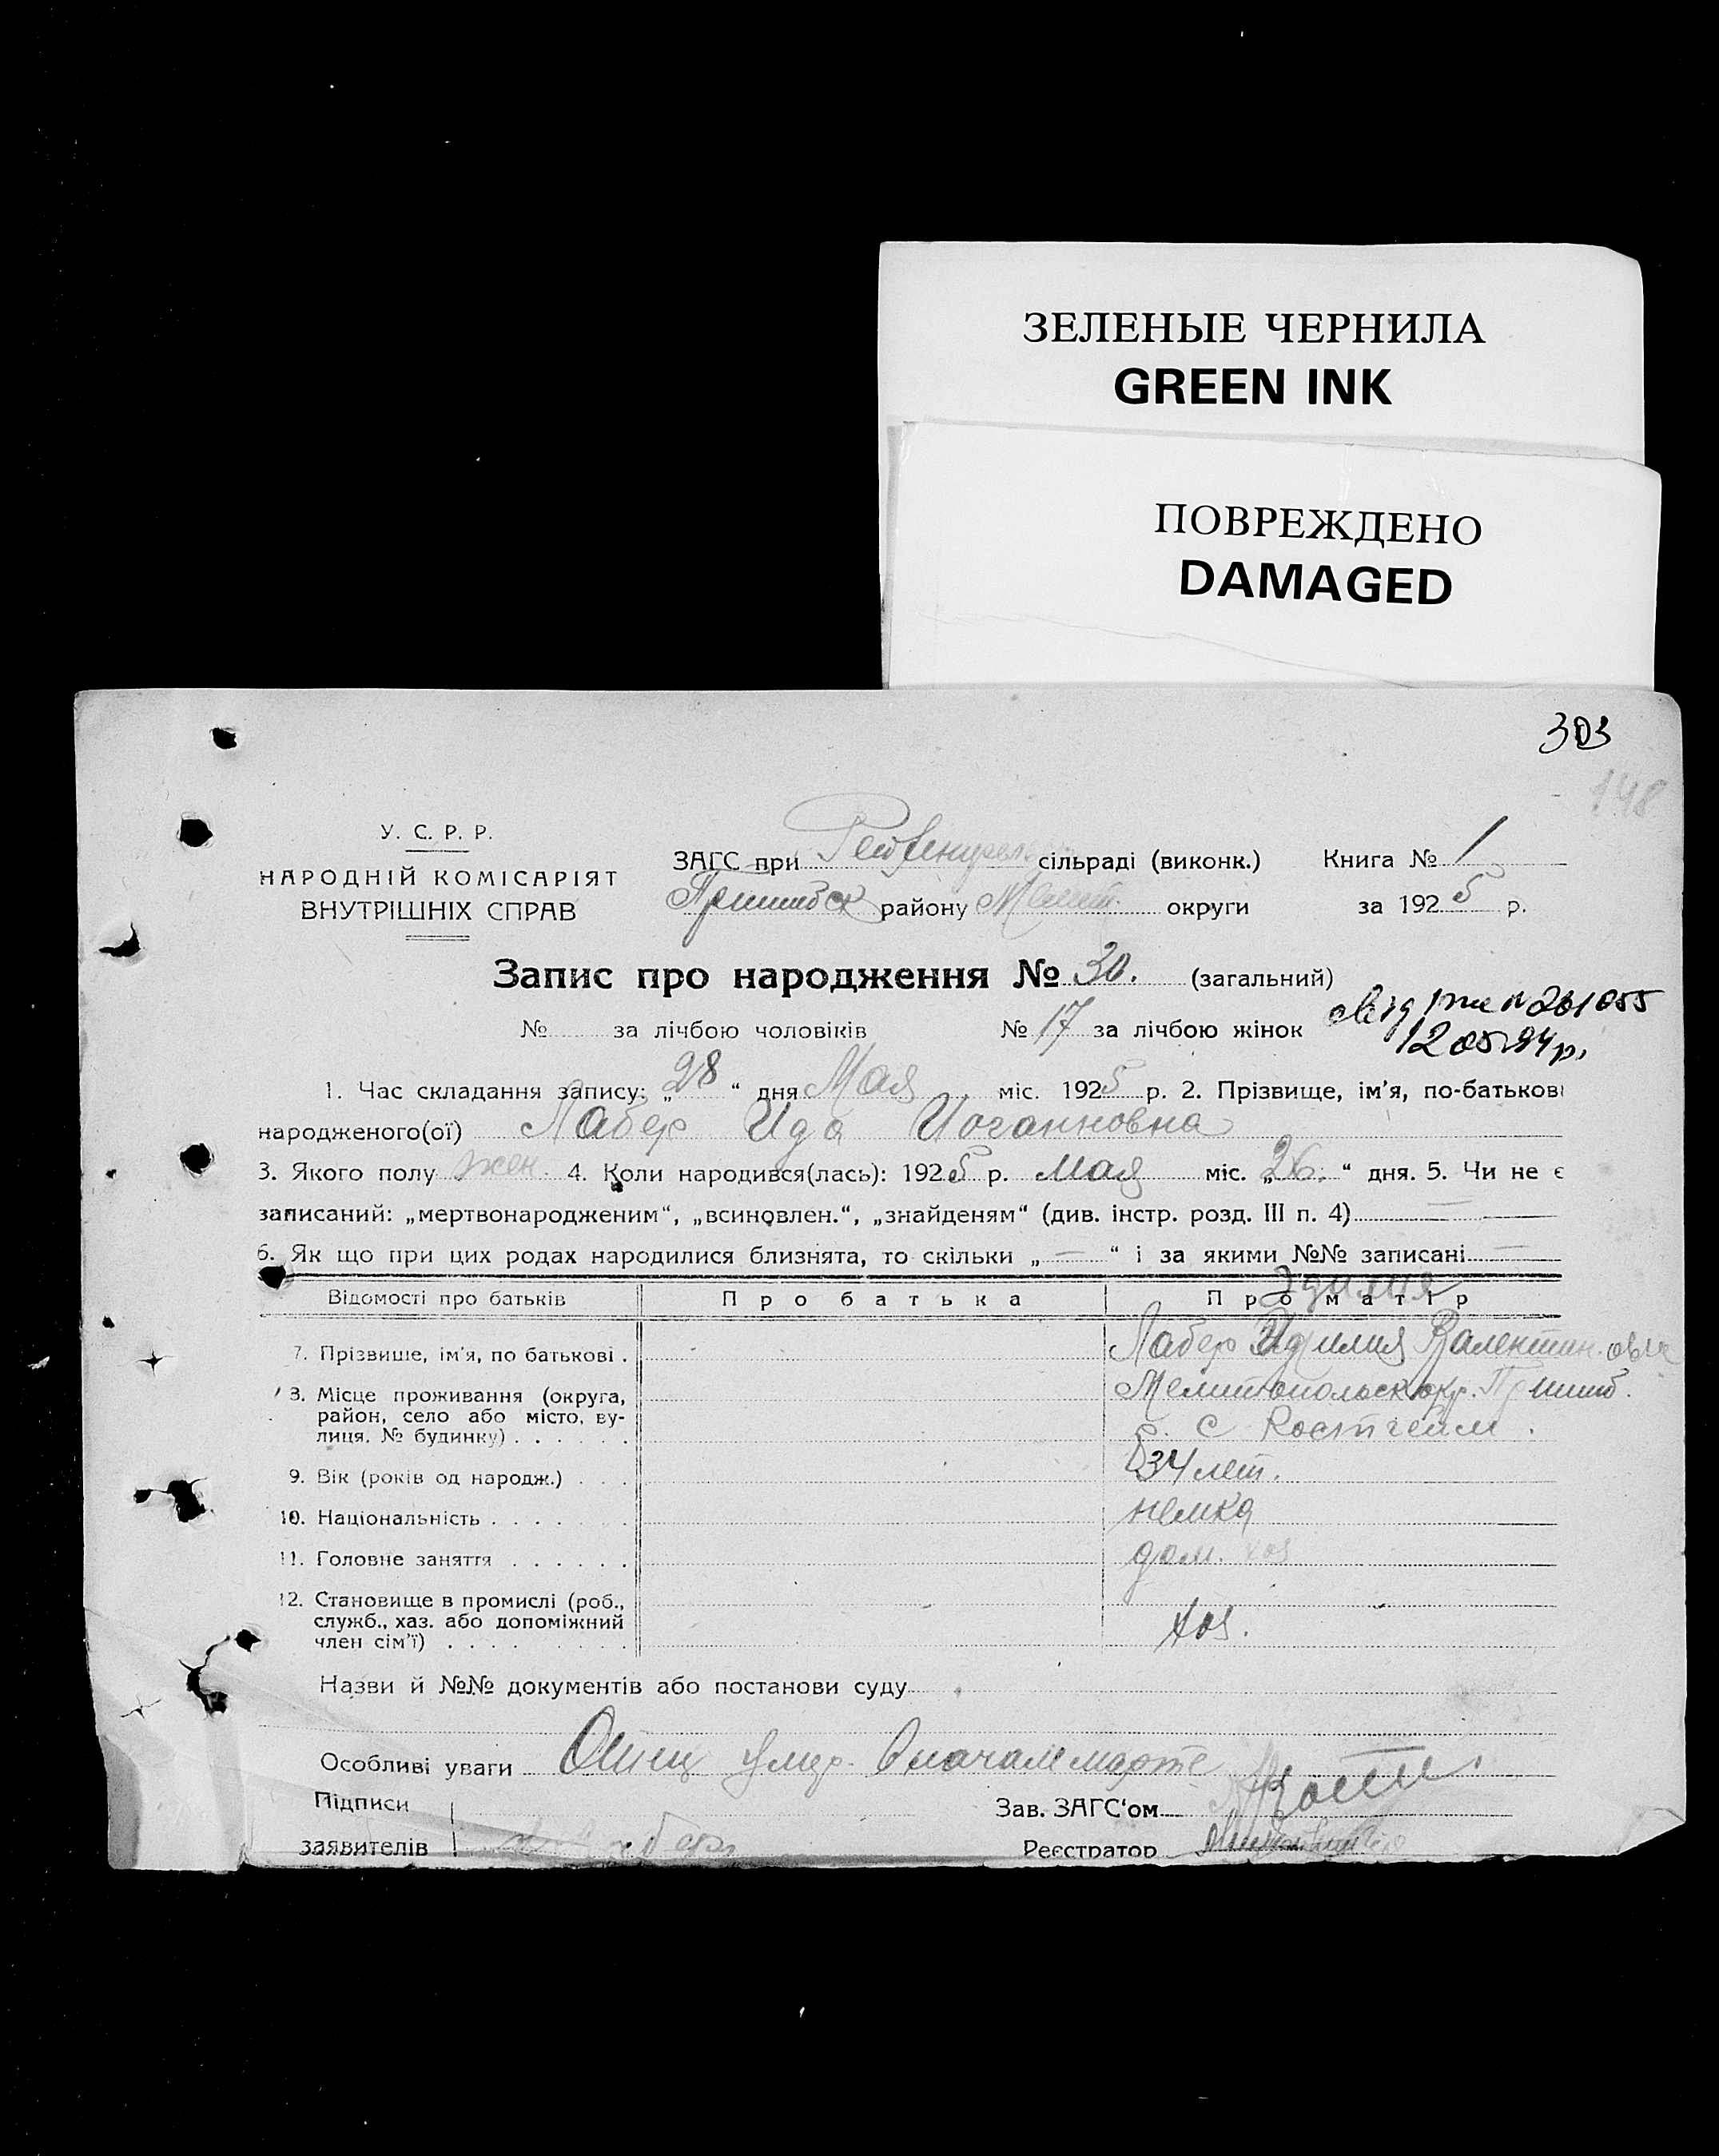 ЗЕЛЕНЫЕ ЧЕРНИЛА
GREEN INK
ПОВРЕЖДЕНО
DAMAGED
303
148
У. С. Р. Р.
НАРОДНІЙ КОМІСАРІЯТ
ВНУТРІШНІХ СПРАВ
ЗАГС при сільраді (виконк.) Книга № 1
Пришибск району Мелит. округи за 1925 р.
Запис про народження № 30. (загальний)
№ за лічбою чоловіків № 17 за лічбою жінок
№ 261055
12 05 94 р.
1. Час складання запису: „28“ дня Мая міс. 1925 р. 2. Прізвище, ім'я, по-батькові
народженого(ої) Лабер Ида Иоганновна
3. Якого полу жен. 4. Коли народився(лась): 1925 р. Мая міс. „26.“ дня. 5. Чи не є
записаний: „мертвонародженим“, „всиновлен.“, „знайденям“ (див. інстр. розд. III п. 4) —
6. Як що при цих родах народилися близнята, то скільки „—“ і за якими №№ записані —
Відомості про батьків Про батька Про матір
Эдилия
7. Прізвище, ім'я, по батькові . Лабер Идилия Валентиновна
8. Місце проживання (округа, Мелитопольск окр. Пришиб.
район, село або місто, ву-
лиця, № будинку) . . . . . . с Костгейм .
9. Вік (років од народж.) . . . 34 лет.
10. Національність . . . . . . . немка
11. Головне заняття . . . . . . дом. хоз
12. Становище в промислі (роб.,
служб., хаз. або допоміжний хоз.
член сім'ї) . . . . . . . . .
Назви й №№ документів або постанови суду
Особливі уваги Отец умер. В начале марте
Підписи Зав. ЗАГС'ом
заявителів Реєстратор